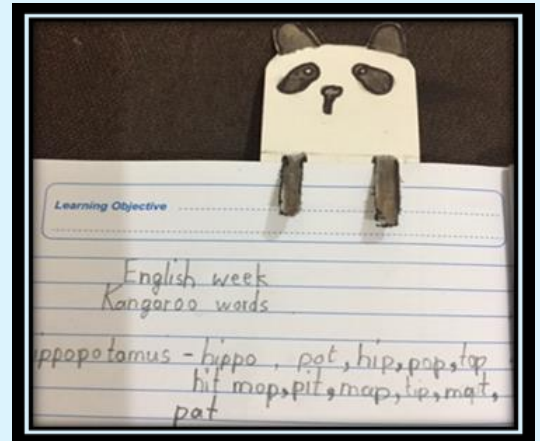 Learning Objective
English week
Kangaroo words
ippopotamus - hippo, pot, hip, pop, top
hit mop, pit, map, tip, mat,
pat